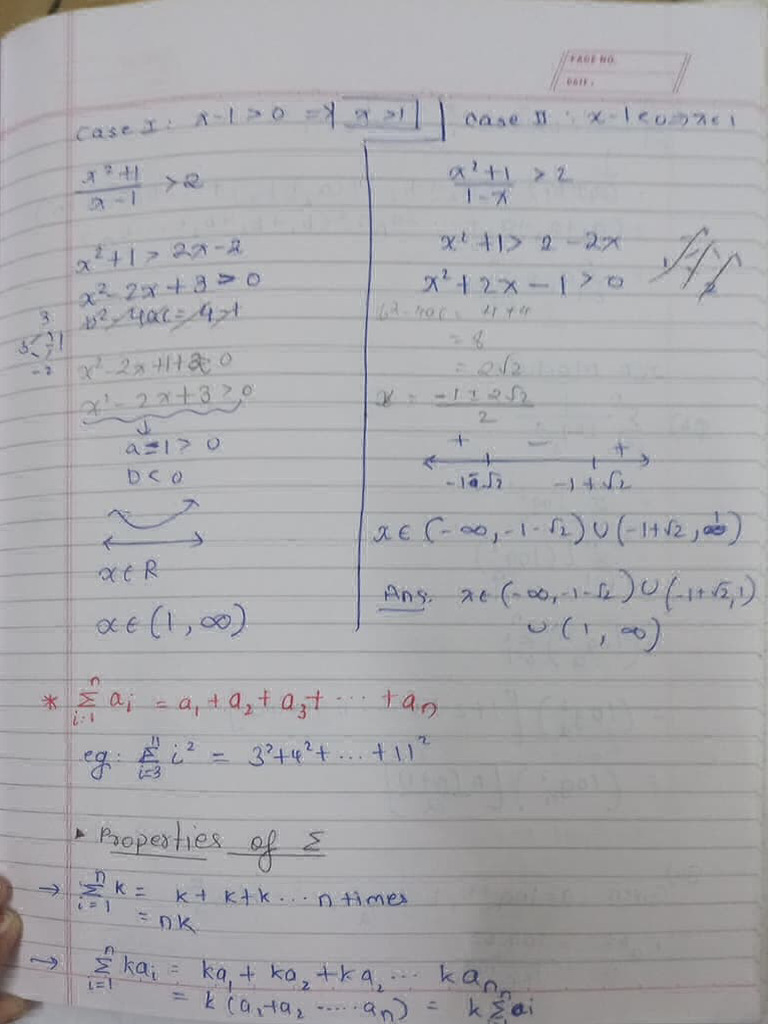 PAGE NO.
DATE:
Case I: x-1>0 => x>1
x²+1/x-1 >2
x²+1 > 2x-2
x²-2x+3 > 0
b²-4ac = 4-1
3
x²-2x+1+2>0
x²-2x+3>0
a=1>0
D<0
x∈R
x∈(1,∞)
Case II: x-1<0=>x<1
x²+1/1-x > 2
x²+1 > 2-2x
x²+2x-1>0
b²-4ac = 4+4
= 8
= 2√2
x = -1±2√2/2
+ - +
-1-√2 -1+√2
x∈(-∞,-1-√2)∪(-1+√2,1)
Ans. x∈(-∞,-1-√2)∪(-1+√2,1)
∪(1,∞)
* n∑i=1 ai = a₁+a₂+a₃+...+an
eg: 11∑i=3 i² = 3²+4²+...+11²
Properties of Σ
→ n∑i=1 k = k+k+k...n times
= nk
→ n∑i=1 kai = ka₁+ka₂+ka₂...kan
= k(a₁+a₂.....an) = k n∑i=1 ai